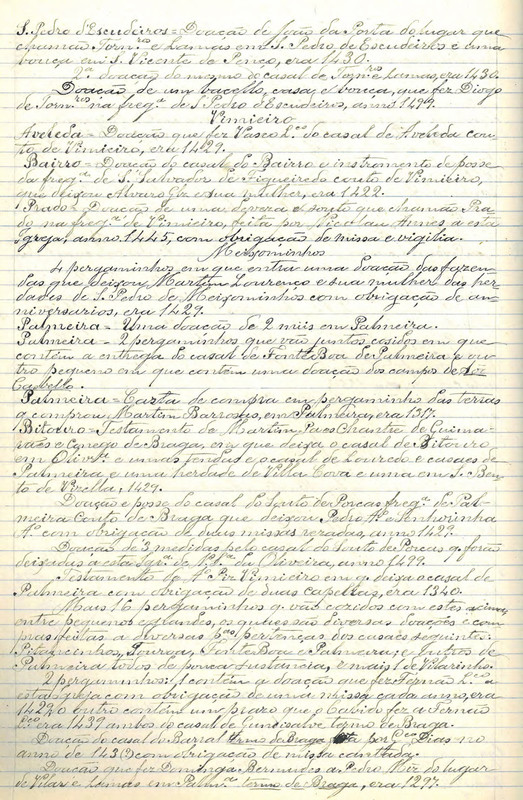 S. Pedro d'Escudeiros = Doação de João da Porta do lugar que
chamão Torn.ros e Lamas em S. Pedro de Escudeiros e uma
bouça em S. Vicente de Penço, era 1430.
2.ª doação do mesmo do casal de Torn.ros e Lamas, era 1430.
Doação de um bacello, casa, e bouça, que fez Diogo
de Torn.ros na freg.ª de S. Pedro d'Escudeiros, anno 1499.
Vimieiro
Aveleda = Doação que fez Vasco L.co do casal de Aveleda cou-
to de Vimieiro, era 1429.
Bairro = Doação do casal do Bairro e instromento de posse
da freg.ª de S. Salvador de Figueiredo couto de Vimieiro,
que deixou Alvaro Glz e sua mulher, era 1422.
Prado = Doação de uma deveza e souto que chamão Pra-
do na freg.ª de Vimieiro, feita por Nicolau Annes a esta
Igreja, anno 1445, com obrigação de missa e vigilia.
Meixominhos
4 pergaminhos em que entra uma doação das fazen-
das que deixou Martim Lourenço e sua mulher das her-
dades de S. Pedro de Meixominhos com obrigação de an-
niversarios, era 1429.
Palmeira = Uma doação de 2 mrs em Palmeira.
Palmeira = 2 pergaminhos que vão juntos cosidos em que
contém a entrega do casal de Fonte Boa de Palmeira e ou-
tro pequeno em que contem uma doação dos campos de
Cabello.
Palmeira = Carta de compra em pergaminho das terras
q comprou Martim Barrosas, em Palmeira, era 1317.
Bitouro = Testamento de Martim Paes Chantre de Guima-
rães e Conego de Braga, em que deixa o casal de Bitouro
em Oliv.ra e umas fendas e o casal de Louredo e casaes de
Palmeira e uma herdade de Villa Cova e uma em S. Ben-
to de Vizella, 1429.
Doação e posse do casal do Souto de Porcas freg.ª de Pal-
meira Couto de Braga que deixou Pedro Af.o e Senhorinha
Af.o com obrigação de duas missas rezadas, anno 1429.
Doação de 3 medidas pelo casal do Souto de Porcas q forão
deixadas a esta Igr.ª de N. S.ra da Oliveira, anno 1499.
Testamento de Af.o Piz Vimieiro em q deixa o casal de
Palmeira com obrigação de duas capellas, era 1340.
Mais 16 pergaminhos q vão cozidos com estes acima,
entre pequenos e grandes, os quaes são diversas doações e com-
pras feitas a diversas p.as pertenças dos casaes seguintes:
Pitancinhos, Louroza, Fonte Boa e Palmeira; e outros de
Palmeira todos de pouca sustancia, e mais 1 de Vilarinho.
2 pergaminhos: 1 contém q doação que fez Fernão L.co a
esta Igreja com obrigação de uma missa cada anno, era
1429 o outro contém um prazo que o Cabido fez a Fernão
L.co era 1439 ambos do casal de Gundisalve termo de Braga.
Doação do casal do Barral termo de Braga feita por L.co Dias no
anno de 143(?) com obrigação de missa cantada.
Doação que fez Dominga Bermudes a Pedro Miz do lugar
de Vilar e Lamas em Palm.ra termo de Braga, era 1297.